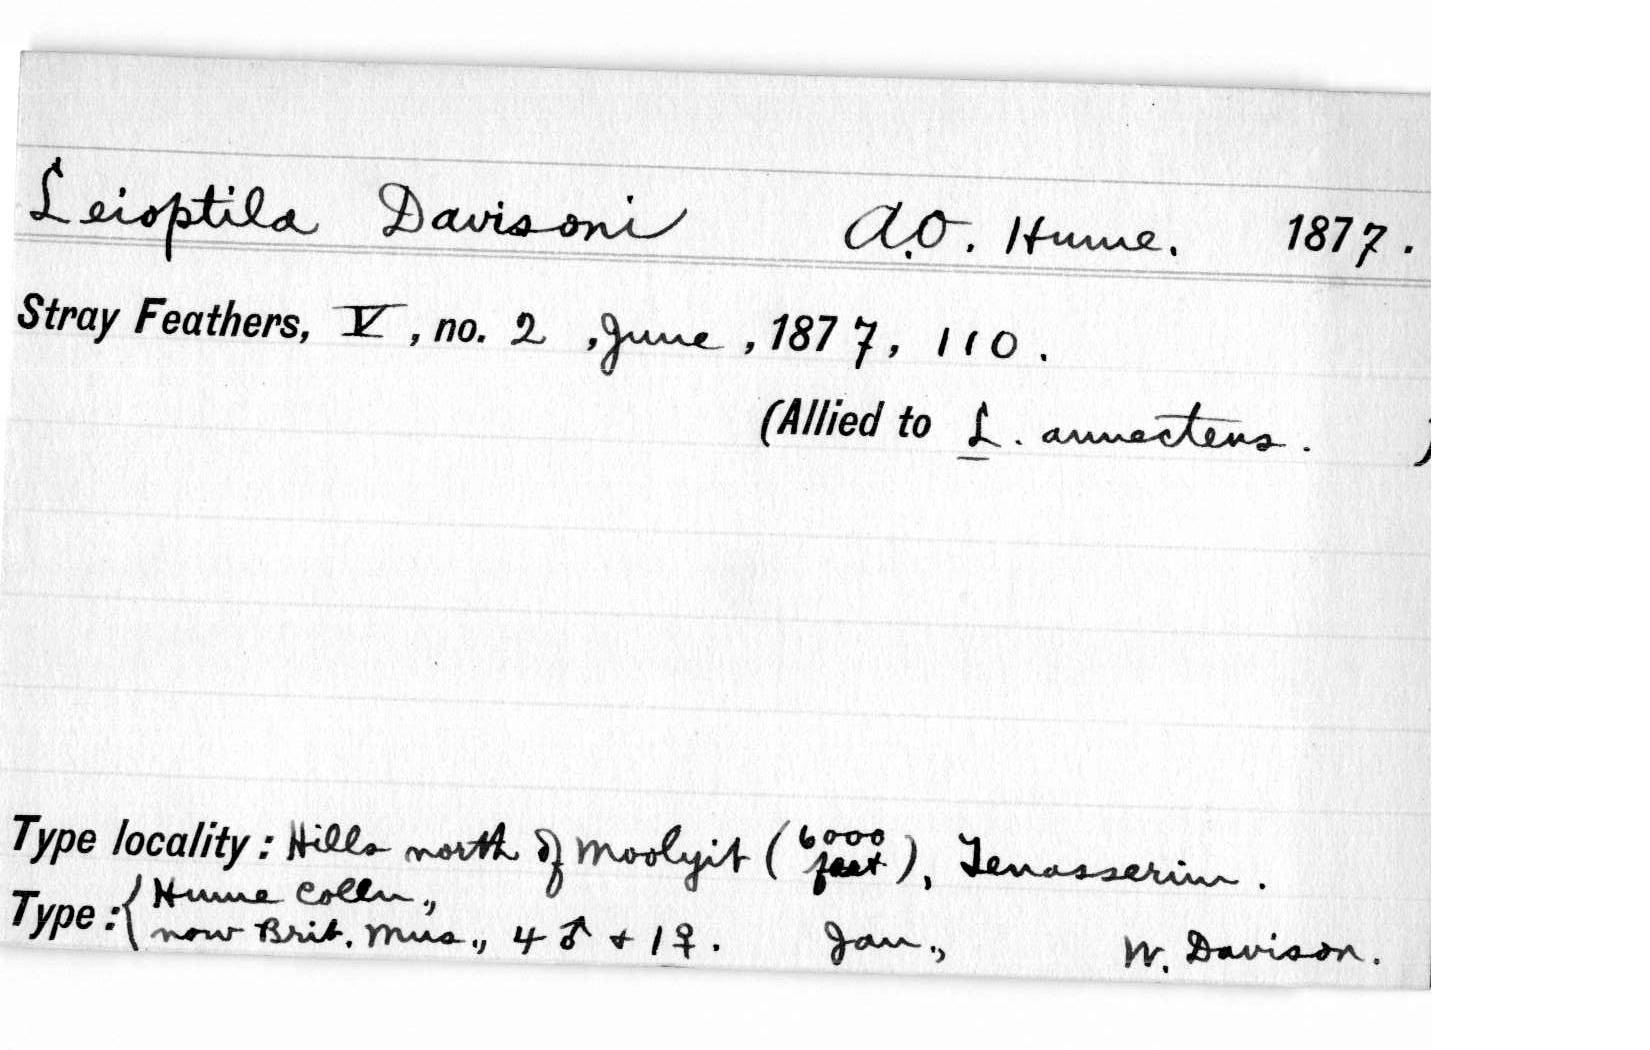 Leioptila Davisoni A.O. Hume. 1877.
Stray Feathers, V, no. 2, June, 1877, 110.
(Allied to L. annectens. )
Type locality: Hills north of Moolyit (6000 feet), Tenasserim.
Type: { Hume Colln.,
now Brit. Mus., 4 ♂ + 1 ♀. Jan., W. Davison.